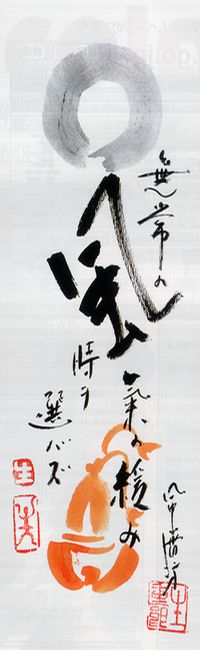 無常の
風
時ヲ
選バズ
氣の緩み